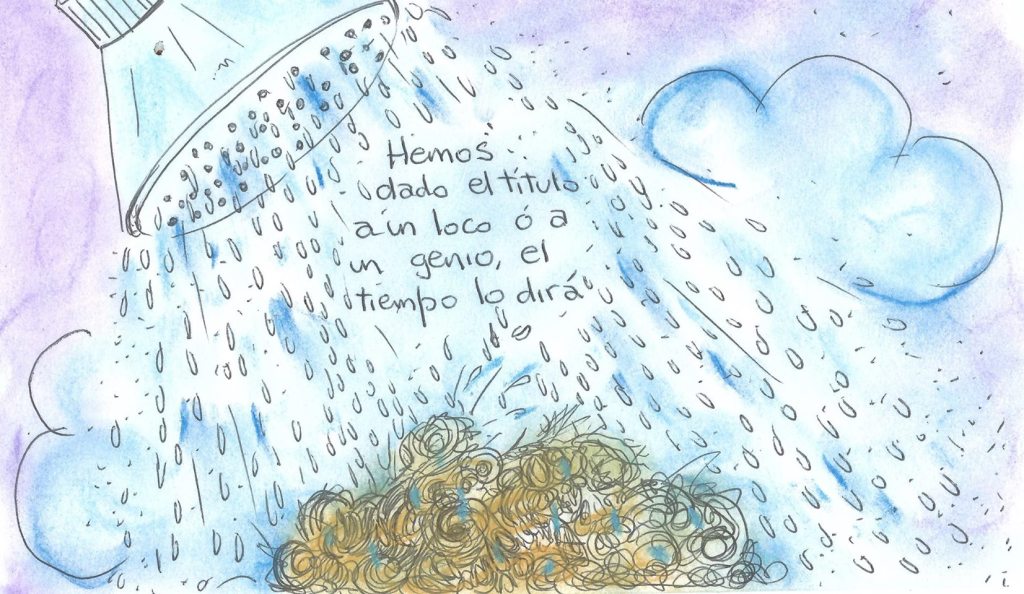 Hemos
dado el título
a ún loco ó a
un genio, el
tiempo lo dirá